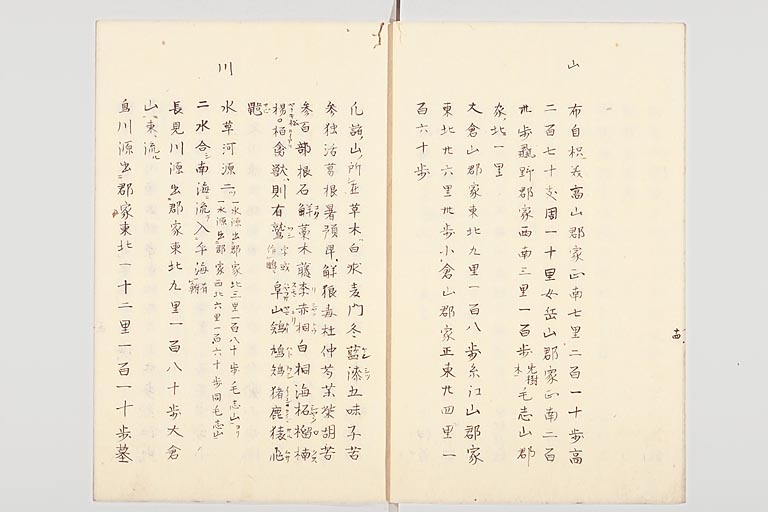 山
布自枳美高山郡家正南七里二百一十歩高
二百七十丈周一十里女岳山郡家正南二百
卅歩蝨野郡家西南三里一百歩無樹木毛志山郡
家北一里
大倉山郡家東北九里一百八歩糸江山郡家
東北廿六里卅歩小倉山郡家正東廿四里一
百六十歩
凡諸山所在草木白朮麦門冬藍漆五味子苦
参独活葛根暑預卑解狼毒杜仲芍薬柴胡苦
参百部根石斛藁本藤李赤桐白桐海柘榴楠
楊松栢禽獣則有鷲字或作鵰阜山鶏鳩雉猪鹿猿飛
鼯
川
水草河源二一水源出郡家北三里一百八十歩毛志山ヨリ一水源出郡家西北六里一百六十歩同毛志山
二水合ニ南海ニ流入乎海有鮒
長見川源出郡家東北九里一百八十歩大倉
山東流ル
鳥川源出郡家東北一十二里一百一十歩墓